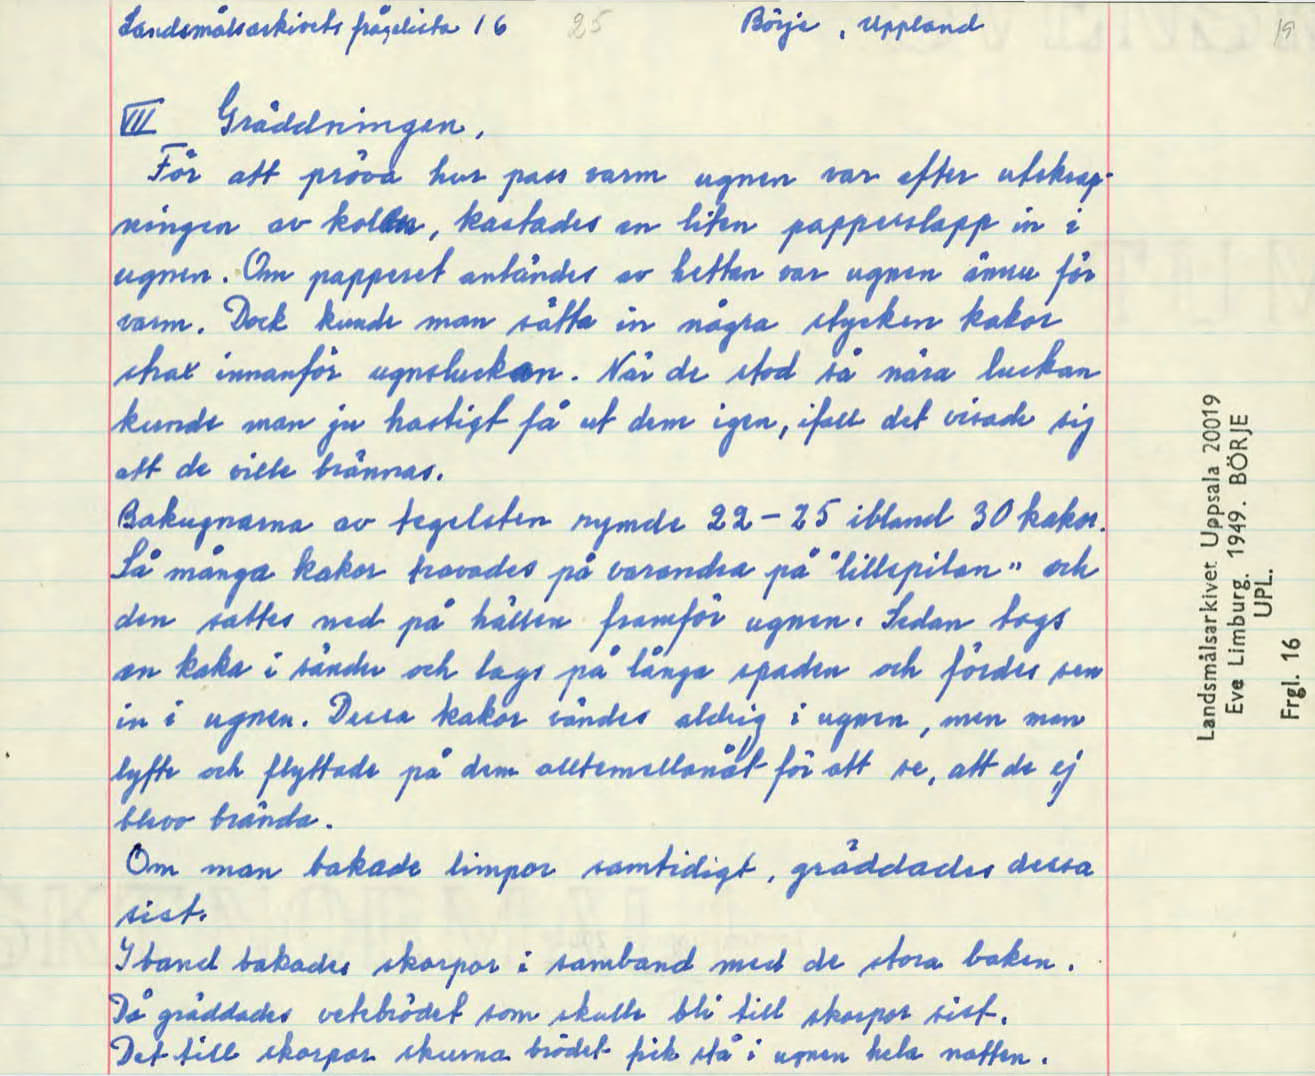 Landsmålsarkivets frågelista 16 25 Börje, Uppland 19
VII Gräddningen,
För att pröva hur pass varm ugnen var efter utskrap-
ningen av kollen, kastades en liten papperslapp in i
ugnen. Om papperet antändes av hettan var ugnen ännu för
varm. Dock kunde man sätta in några stycken kakor
strax innanför ugnsluckan. När de stod så nära luckan
kunde man ju hastigt få ut dem igen, ifall det visade sig
att de ville brännas.
Bakugnarna av tegelsten rymde 22-25 ibland 30 kakor.
Så många kakor travades på varandra på "lillspilan" och
den sattes ned på hällen framför ugnen. Sedan togs
en kaka i sänder och lags på långa spaden och fördes sen
in i ugnen. Dessa kakor vändes aldrig i ugnen, men man
lyfte och flyttade på dem alltemellanåt för att se, att de ej
blevo brända.
Om man bakade limpor samtidigt, gräddades dessa
sist.
Iband bakades skorpor i samband med de stora baken.
Då gräddades vetebrödet som skulle bli till skorpor sist.
Det till skorpor skurna brödet fick stå i ugnen hela natten.
Landsmålsarkivet Uppsala 20019
Eve Limburg. 1949. BÖRJE
UPL.
Frgl. 16